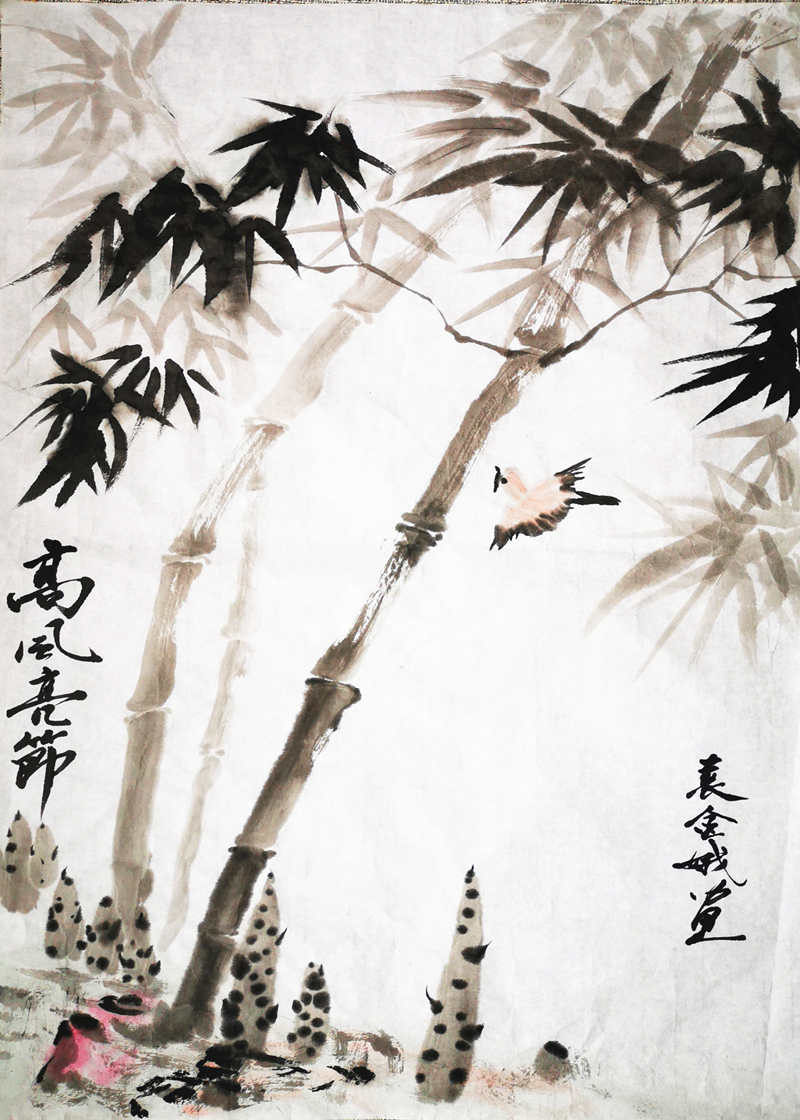 高風亮節
袁金娥画